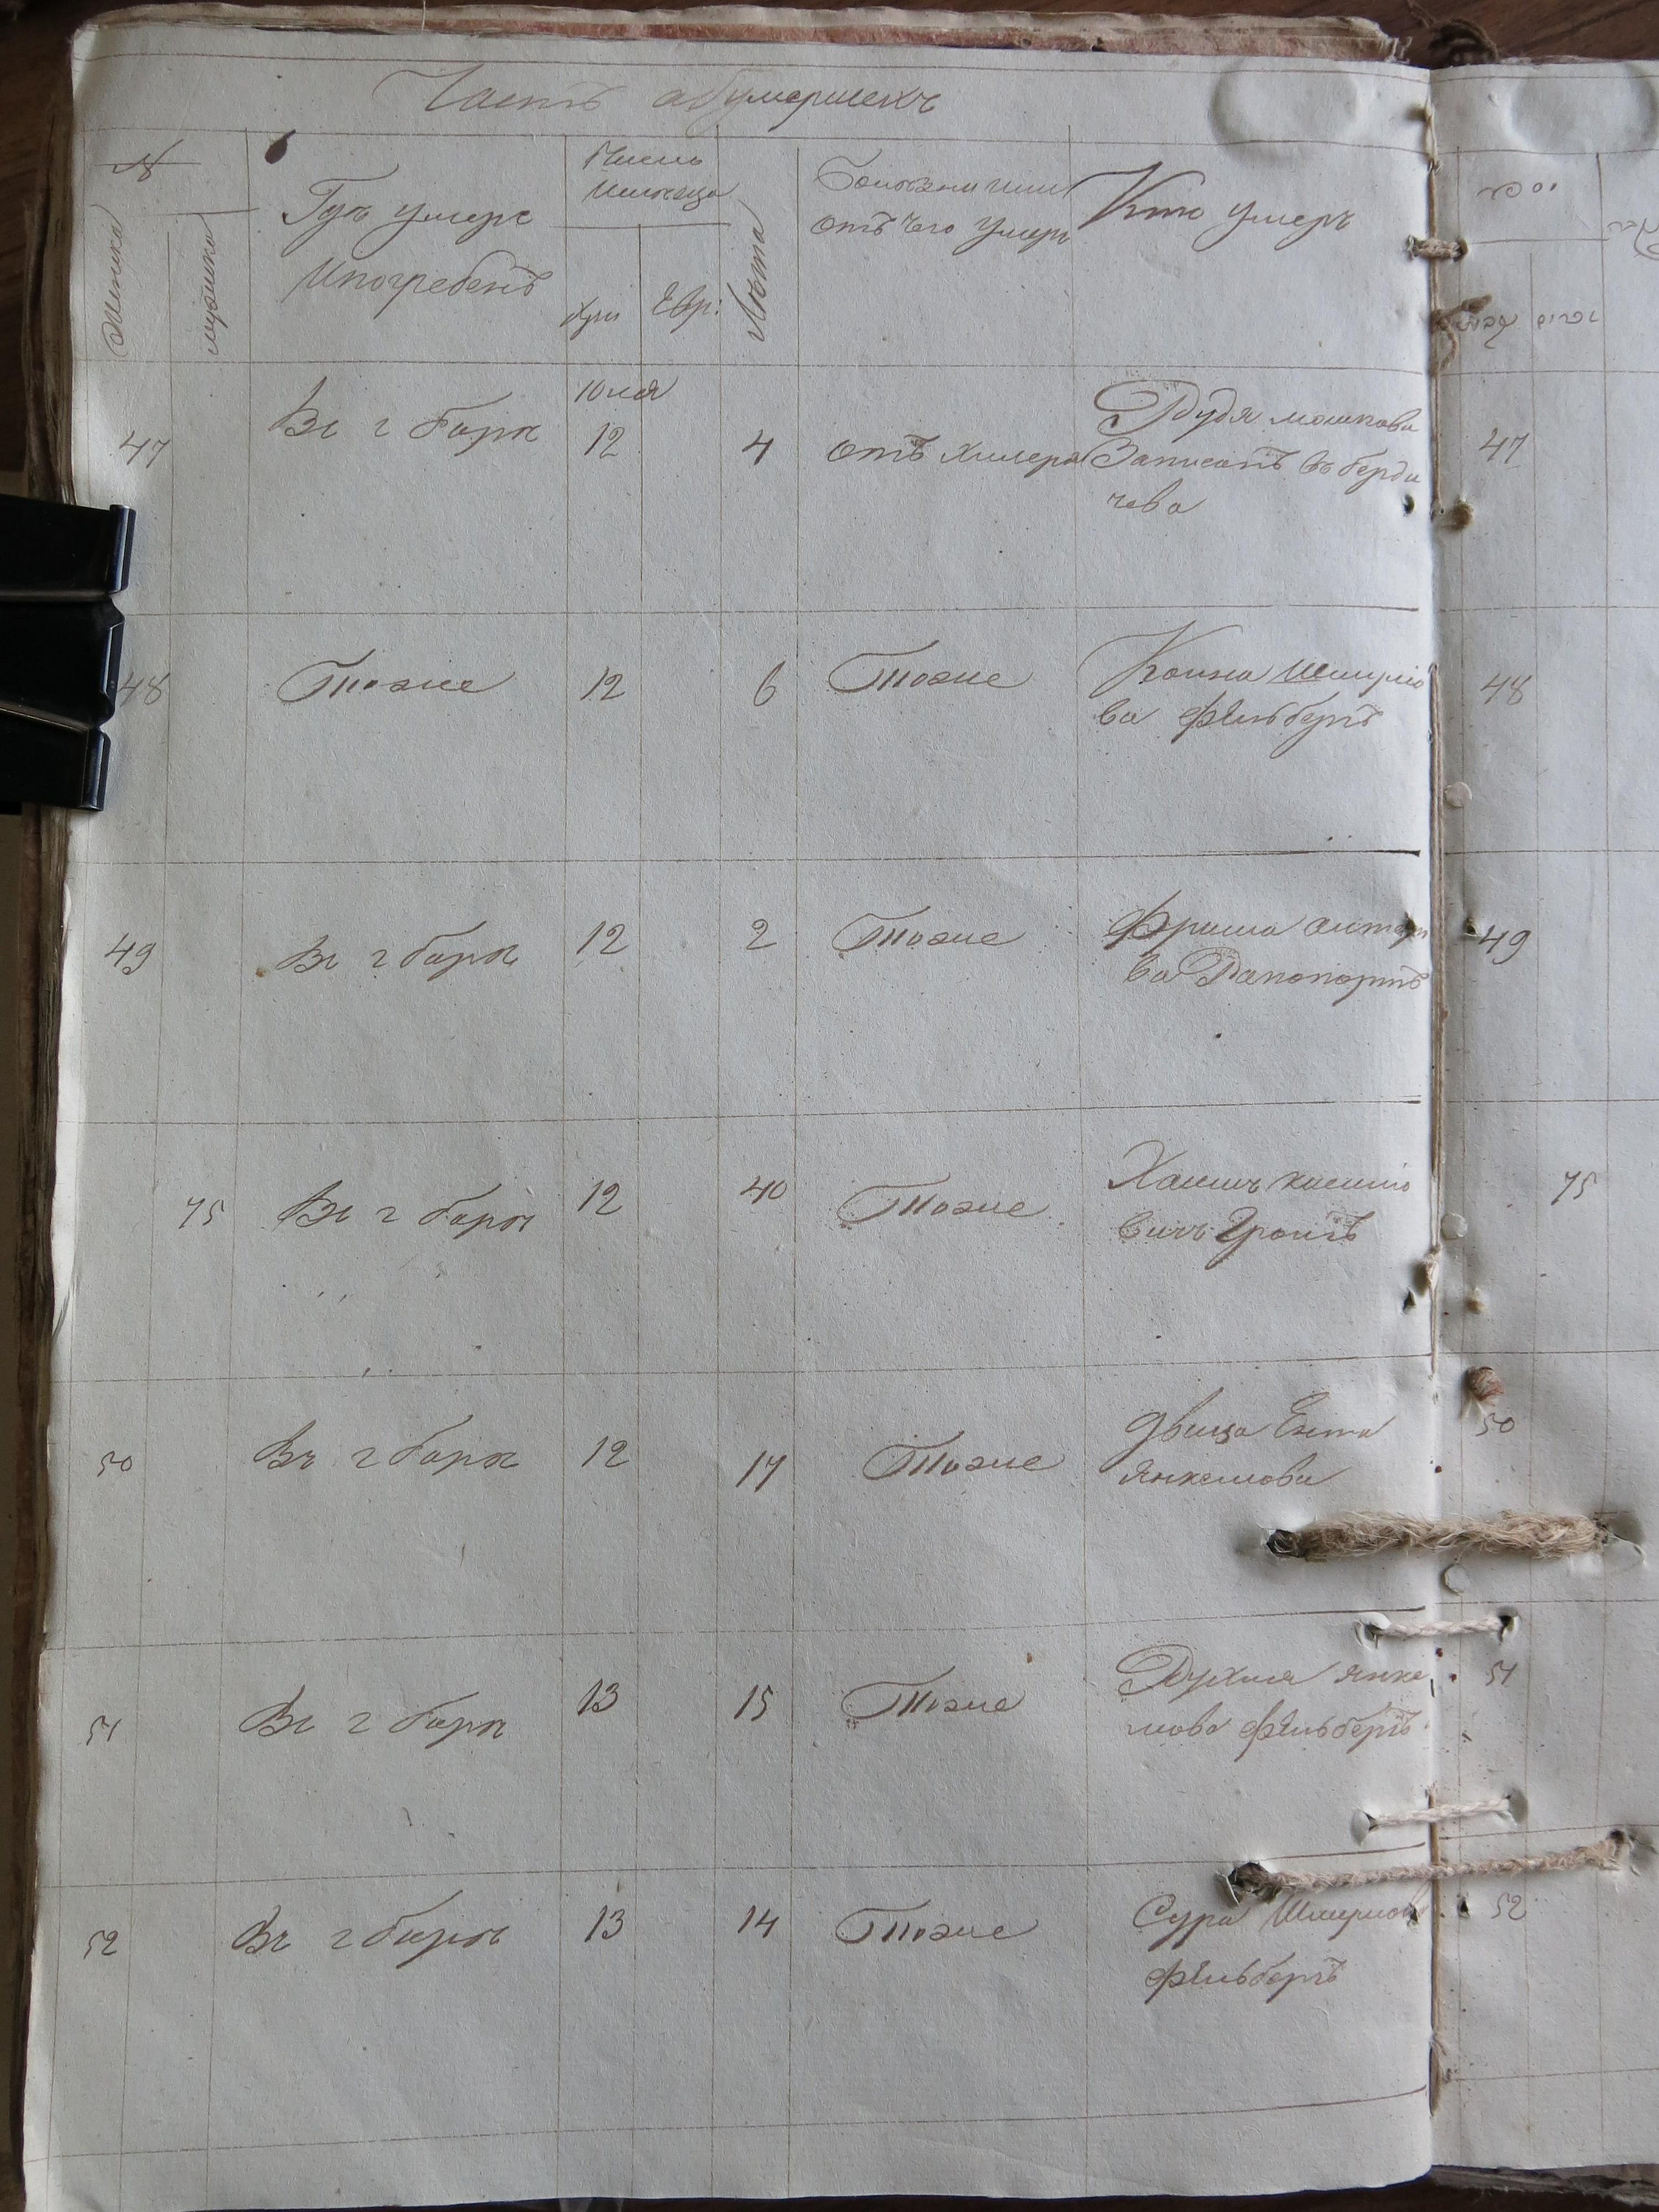 Часть абумершехъ
№
Женска
мужинка
Гдѣ умерс
Ипогребенъ
Число
Месеца
Хри
Евр:
Лѣта
Болезни или
отъ чего умеръ
Кто умеръ
47
Въ г барѣ
Юля
12
4
отъ холера
Рудя мошкова
Записанъ въ берди
чева
47
48
Тоже
12
6
Тоже
ва фельберъ
48
49
Въ г барѣ
12
2
Тоже
Фрима
ва Рапопортъ
49
75
Въ г барѣ
12
40
Тоже
Хаимъ
вичъ
75
50
Въ г барѣ
12
17
Тоже
двица Ента
Янкелова
50
51
Въ г барѣ
13
15
Тоже
Рухля Янке
лова фельберъ
51
52
Въ г барѣ
13
14
Тоже
Сура Шмулов
фельберъ
52